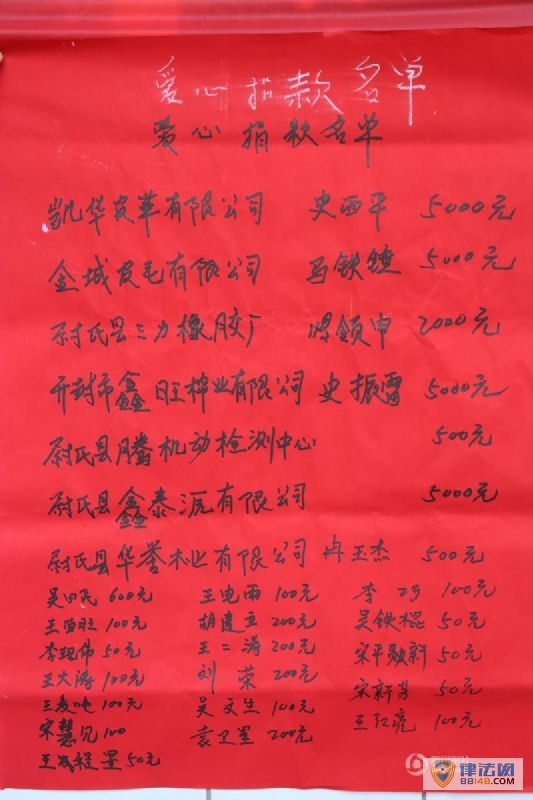 爱心捐款名单
爱心捐款名单
凯华皮革有限公司 史西平 5000元
金城皮毛有限公司 马铁锤 5000元
尉氏县三力橡胶厂 申 2000元
开封市鑫旺棉业有限公司 史振雷 5000元
尉氏县腾机动检测中心 500元
尉氏县鑫泰 有限公司 5000元
尉氏县华誉木业有限公司 冉王杰 500元
吴 民 600元 王电雨 100元 李 100元
王 旺 100元 胡建立 200元 吴铁棍 50元
李现伟 50元 王二涛 200元 宋平 新 50元
王大海 100元 刘荣 200元 宋新 50元
王 100元 吴文生 100元 王红亮 100元
宋慧 100 袁卫星 200元
王 星 50元
律法网
88148.COM